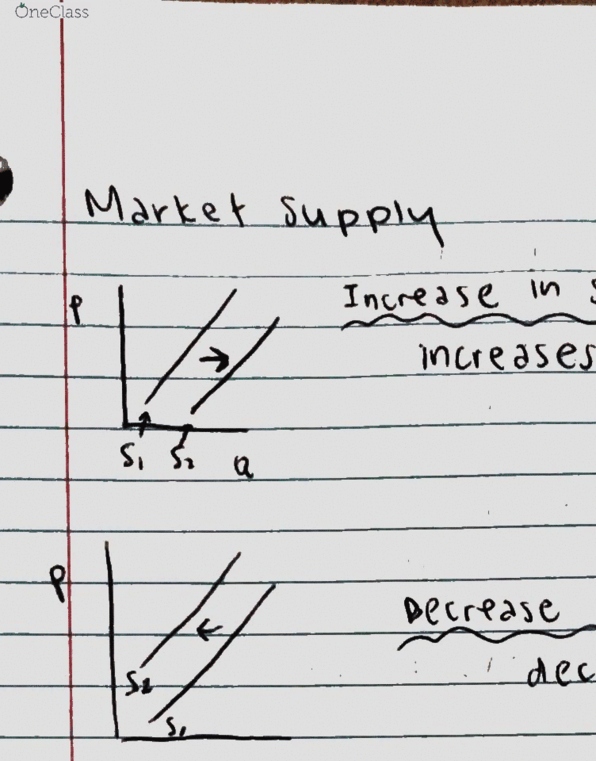 OneClass
Market Supply
P
Increase in
increases
S1 S2 Q
P
Decrease
S2
dec
S1